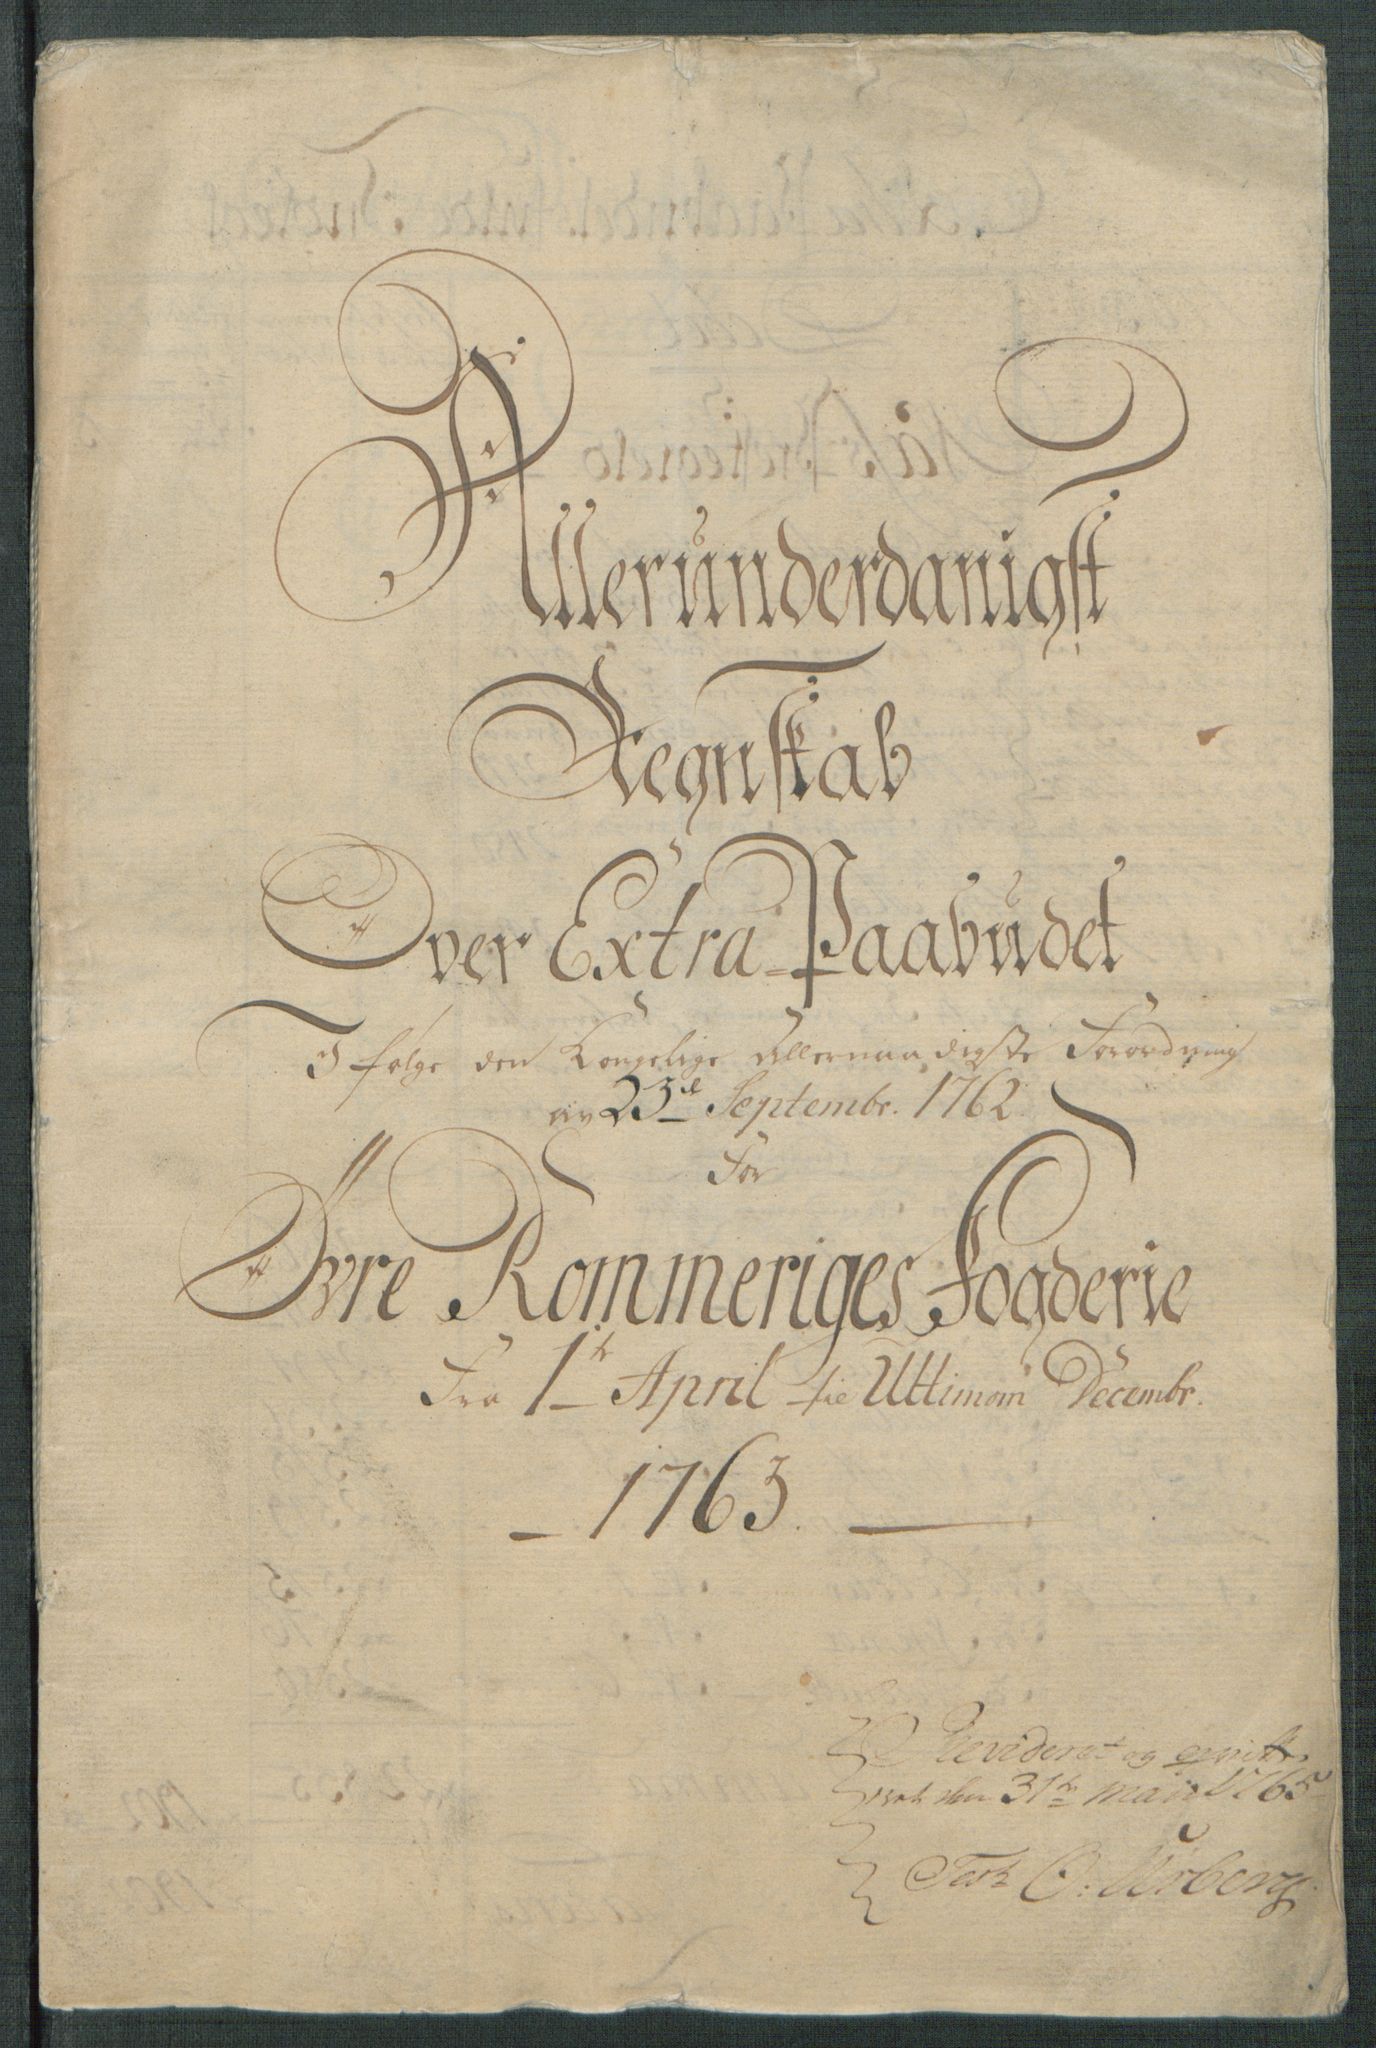 Allerunderdanigst
Regnskab
Over Extra Paabudet
I følge den Kongelige Allernaadigste Forordning
av 23de Septembr. 1762
For
Øvre Rommeriges Fogderie
Fra 1te April til Ultimom Decembr.
1763.
Revideret og
den 31te Maii 1765
Test O: Urberg